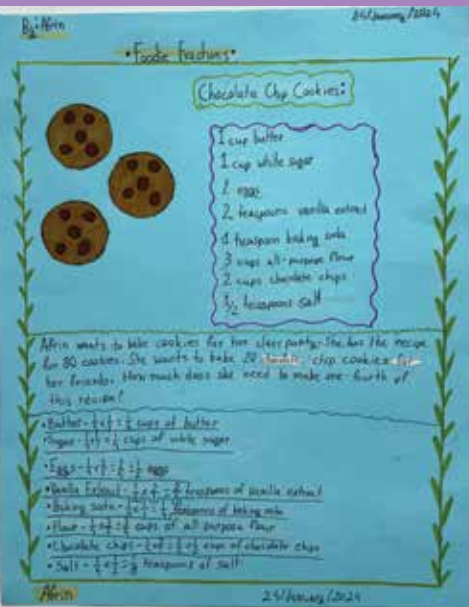 By:- Afrin
24/January/2024
• Foodie Fractions •
Chocolate Chip Cookies:
1 cup butter
1 cup white sugar
2 eggs
2 teaspoons vanilla extract
1 teaspoon baking soda
3 cups all-purpose flour
2 cups chocolate chips
1/2 teaspoon salt
Afrin wants to bake cookies for her class party. She has the recipe
for 80 cookies. She wants to bake 20 chocolate chip cookies for
her friends. How much does she need to make one-fourth of
this recipe?
• Butter - 1/4 x 1/1 = 1/4 cups of butter
Sugar - 1/4 x 1/1 = 1/4 cups of white sugar
• Eggs - eggs
• Vanilla Extract - teaspoons of vanilla extract
• Baking soda - teaspoons of baking soda
• Flour - cups of all purpose flour
• Chocolate chips - cups of chocolate chips
• Salt - teaspoons of salt
Afrin
24/January/2024